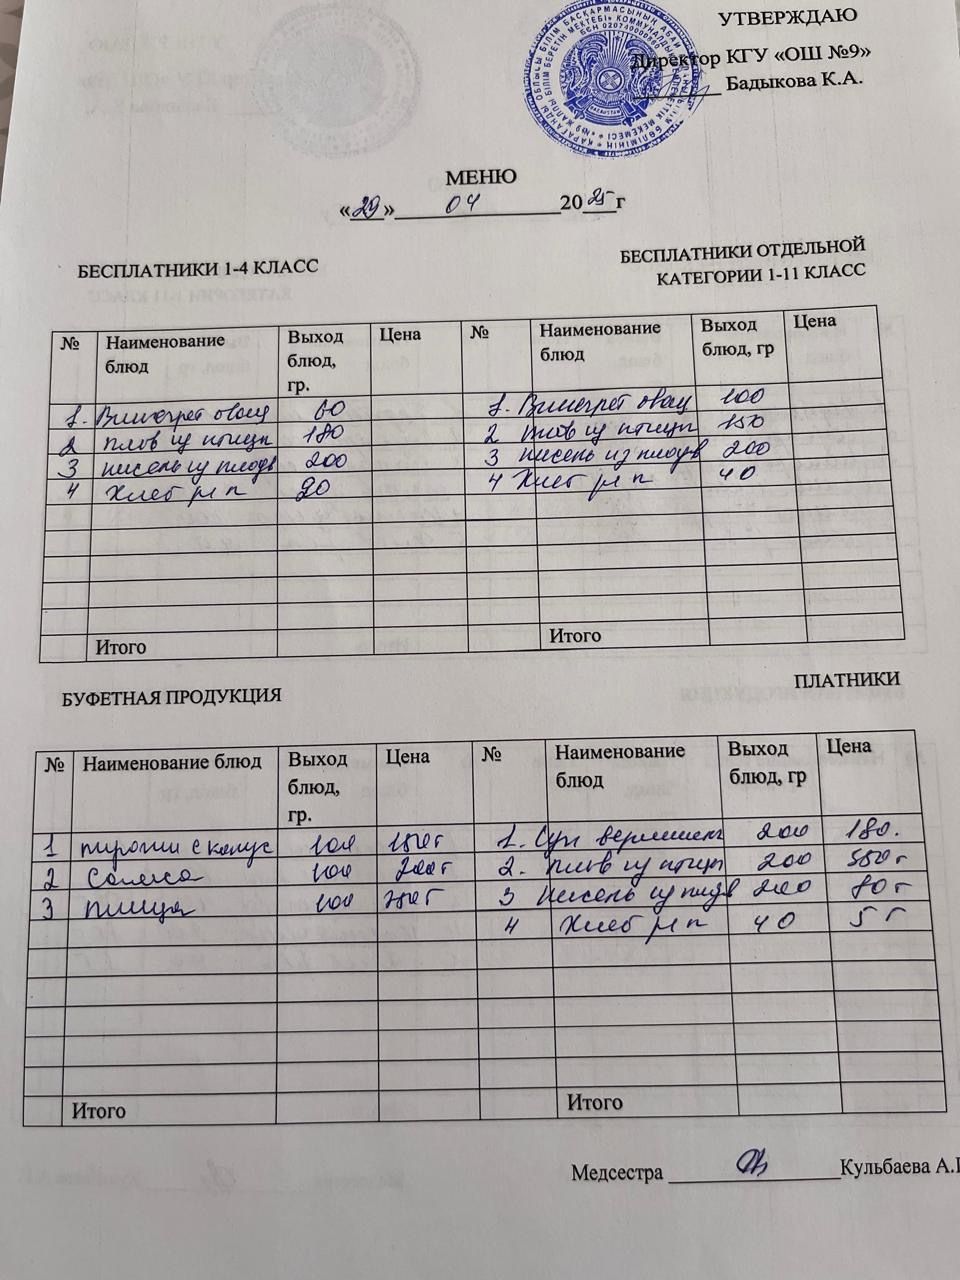 УТВЕРЖДАЮ
Директор КГУ «ОШ №9»
Бадыкова К.А.
МЕНЮ
«29» 04 2025г
БЕСПЛАТНИКИ 1-4 КЛАСС
БЕСПЛАТНИКИ ОТДЕЛЬНОЙ
КАТЕГОРИИ 1-11 КЛАСС
№ Наименование блюд Выход блюд, гр. Цена № Наименование блюд Выход блюд, гр Цена
1. Винегрет овощ 60 1. Винегрет овощ 100
2 плов из птицы 180 2 плов из птицы 150
3 кисель из плодов 200 3 кисель из плодов 200
4 Хлеб рж п 20 4 Хлеб рж п 40
Итого Итого
БУФЕТНАЯ ПРОДУКЦИЯ
ПЛАТНИКИ
№ Наименование блюд Выход блюд, гр. Цена № Наименование блюд Выход блюд, гр Цена
1 пирожки с капус 100 1. Суп вермишел 200 180.
2 100 200т 2. плов из птицы 200
3 пицца 100 3 кисель из плодов 200 80т
4 Хлеб рж п 40 5т
Итого Итого
Медсестра Кульбаева А.